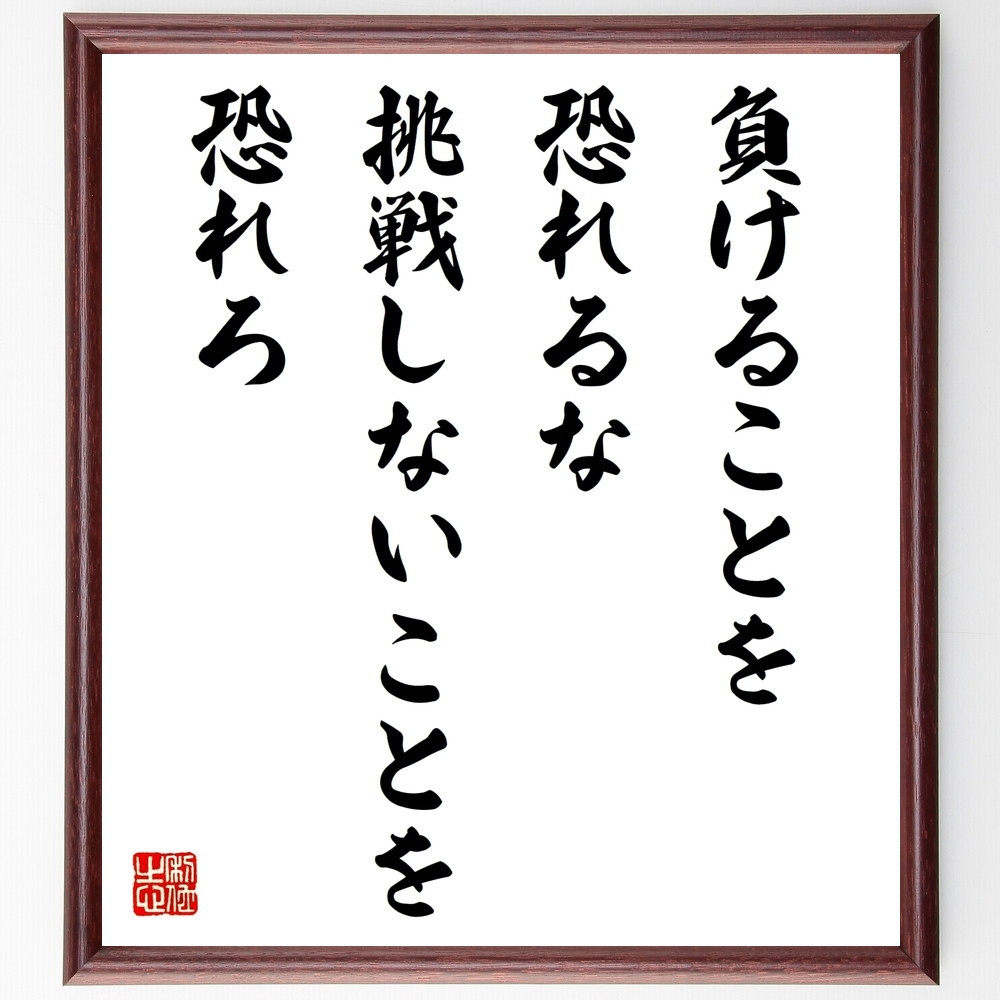 負けることを
恐れるな
挑戦しないことを
恐れろ